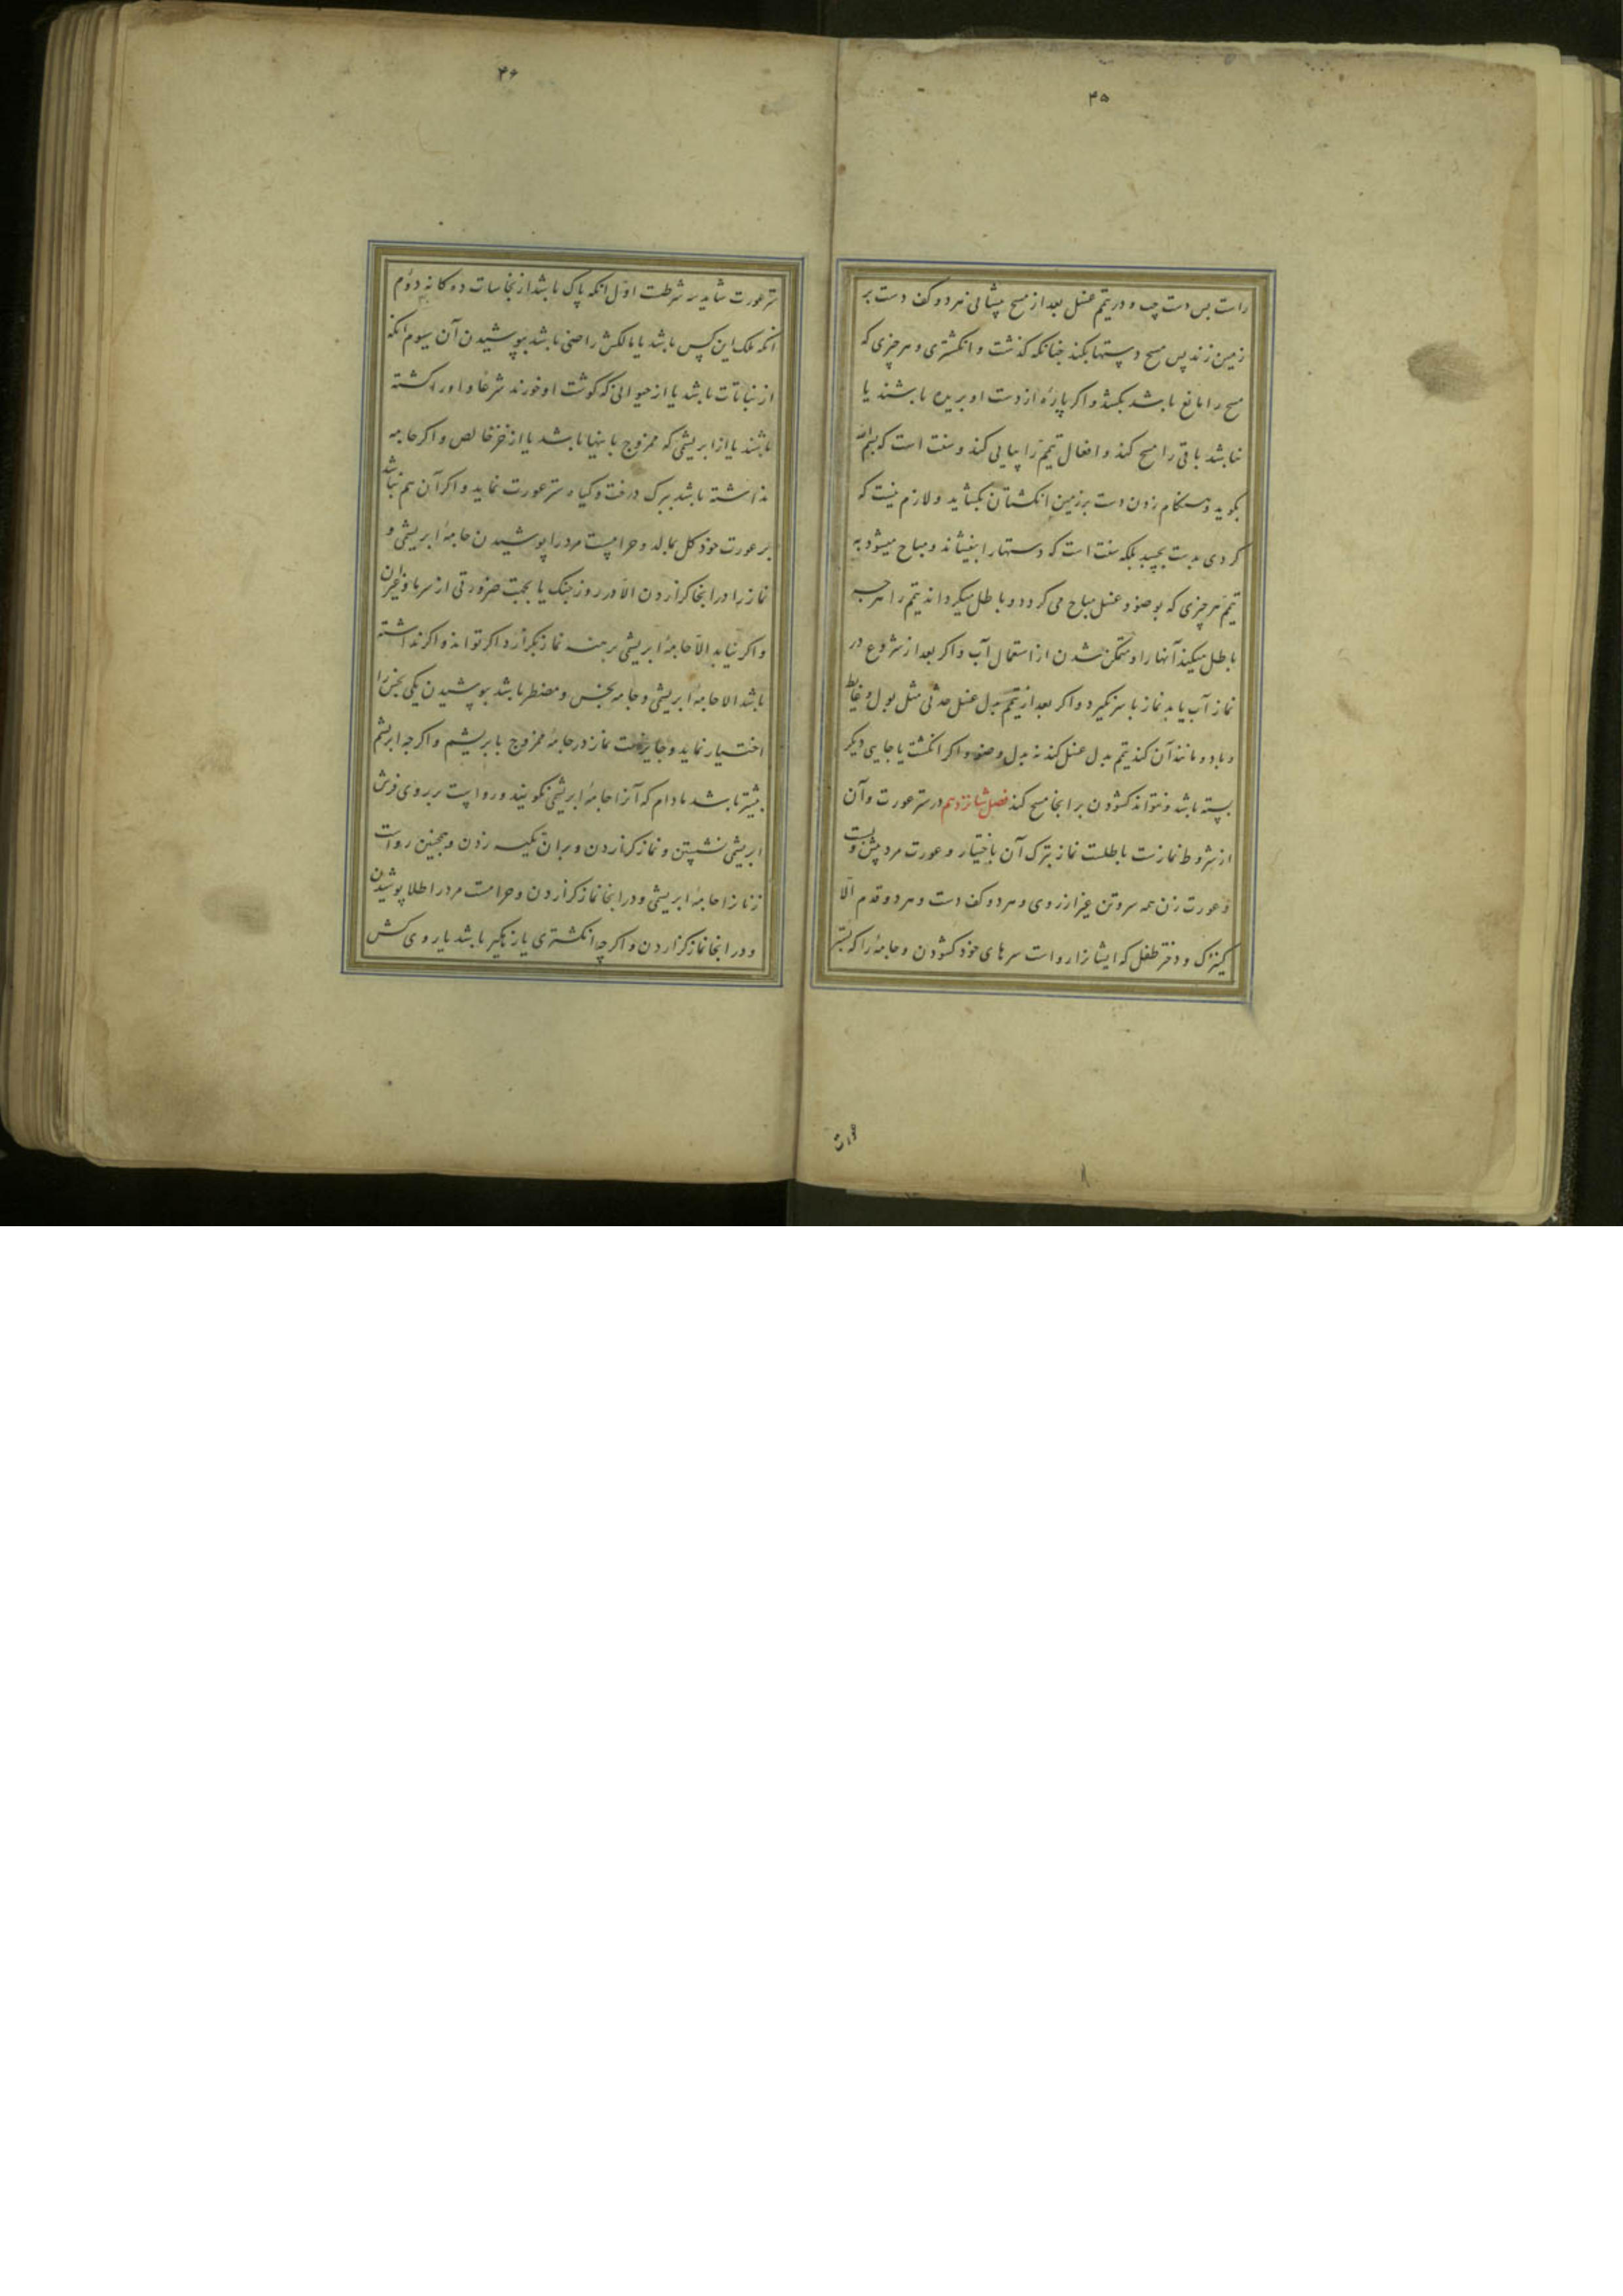 ۴۵
راست پس دست چپ و در تیمم غسل بعد از مسح پیشانی هر دو کف دست بر
زمین زند پس مسح دستها بکند چنانکه گذشت و انکشتری و هر چیزی که
مسح را مانع باشد بکشد و اکر پارهٔ از دست او بریده باشند یا
نباشد باقی را مسح کند و افعال تیمم را پیاپی کند و سنت است که بسم الله
بکوید و هنکام زدن دست بر زمین انکشتان بکشاید و لازم نیست که
کردی بدست بچسبد بلکه سنت است که دستها را بیفشاند و مباح میشود به
تیمم هر چیزی که بوضو و غسل مباح می کردد و باطل میکرداند تیمم را هرچه
باطل میکند آنها را و متمکن شدن از استعمال آب و اکر بعد از شروع در
نماز آب یابد نماز باسر نکیرد و اکر بعد از تیمم بدل غسل حدثی مثل بول و غایط
و باد و مانند آن کند تیمم بدل غسل کند نه بدل وضو و اکر انکشت یا جایی دیکر
بسته باشد و نتواند کشودن بر انجا مسح کند فصل شانزدهم در ستر عورت و آن
از شروط نمازست باطلست نماز بترک آن باختیار و عورت مرد پیش و پست
و عورت زن همه سر و تن غیر از روی و هر دو کف دست و هر دو قدم الّا
کنیزک و دختر طفل که ایشانرا رواست سرهای خود کشودن و جامهٔ را که بدان
۴۶
ستر عورت شاید سه شرطست اوّل انکه پاک باشد از نجاسات دوکانه دوم
انکه ملک این کس باشد یا مالکش راضی باشد بپوشیدن آن سیوم انکه
از نباتات باشد یا از حیوانی که کوشت او خورند شرعًا و او را کشته
باشند یا از ابریشمی که ممزوج باینها باشد یا از خز خالص و اکر جامه
نداشته باشد ببرک درخت و کیاه ستر عورت نماید و اکر آن هم نباشد
بر عورت خود کل بمالد و حرامست مرد را پوشیدن جامهٔ ابریشمی و
نماز را در انجا کزاردن الّا در روز جنک یا بجهت ضرورتی از سرما و غیر آن
و اکر نیابد الّا جامهٔ ابریشمی برهنه نماز بکزارد اکر تواند و اکر نداشته
باشد الا جامهٔ ابریشمی و جامه نجس و مضطر باشد بپوشیدن یکی نجس را
اختیار نماید و جایزست نماز در جامهٔ ممزوج بابریشم و اکرچه ابریشم
بیشتر باشد مادام که آنرا جامهٔ ابریشمی نکویند و رواست بر روی فرش
ابریشمی نشستن و نماز کزاردن و بران تکیه زدن و همچنین رواست
زنانرا جامهٔ ابریشمی و در انجا نماز کزاردن و حرامست مرد را طلا پوشیدن
و در انجا نماز کزاردن و اکرچه انکشتری یا زهکیر باشد یا روی کش